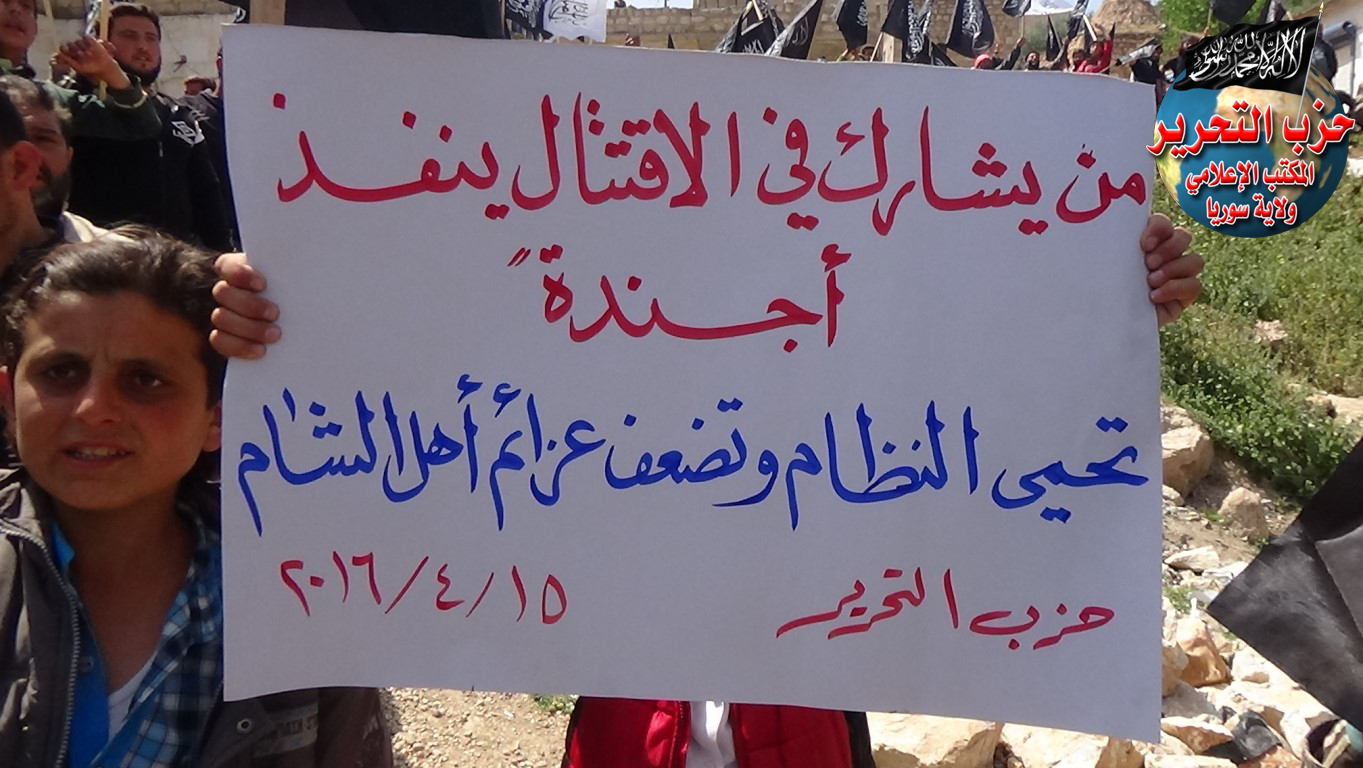 من يشارك في الاقتتال ينفذ
أجندةً
تحمي النظام وتضعف عزائم أهل الشام
حزب التحرير ١٥/٤/٢٠١٦
لا إله إلا الله محمد رسول الله
حزب التحرير
المكتب الإعلامي
ولاية سوريا